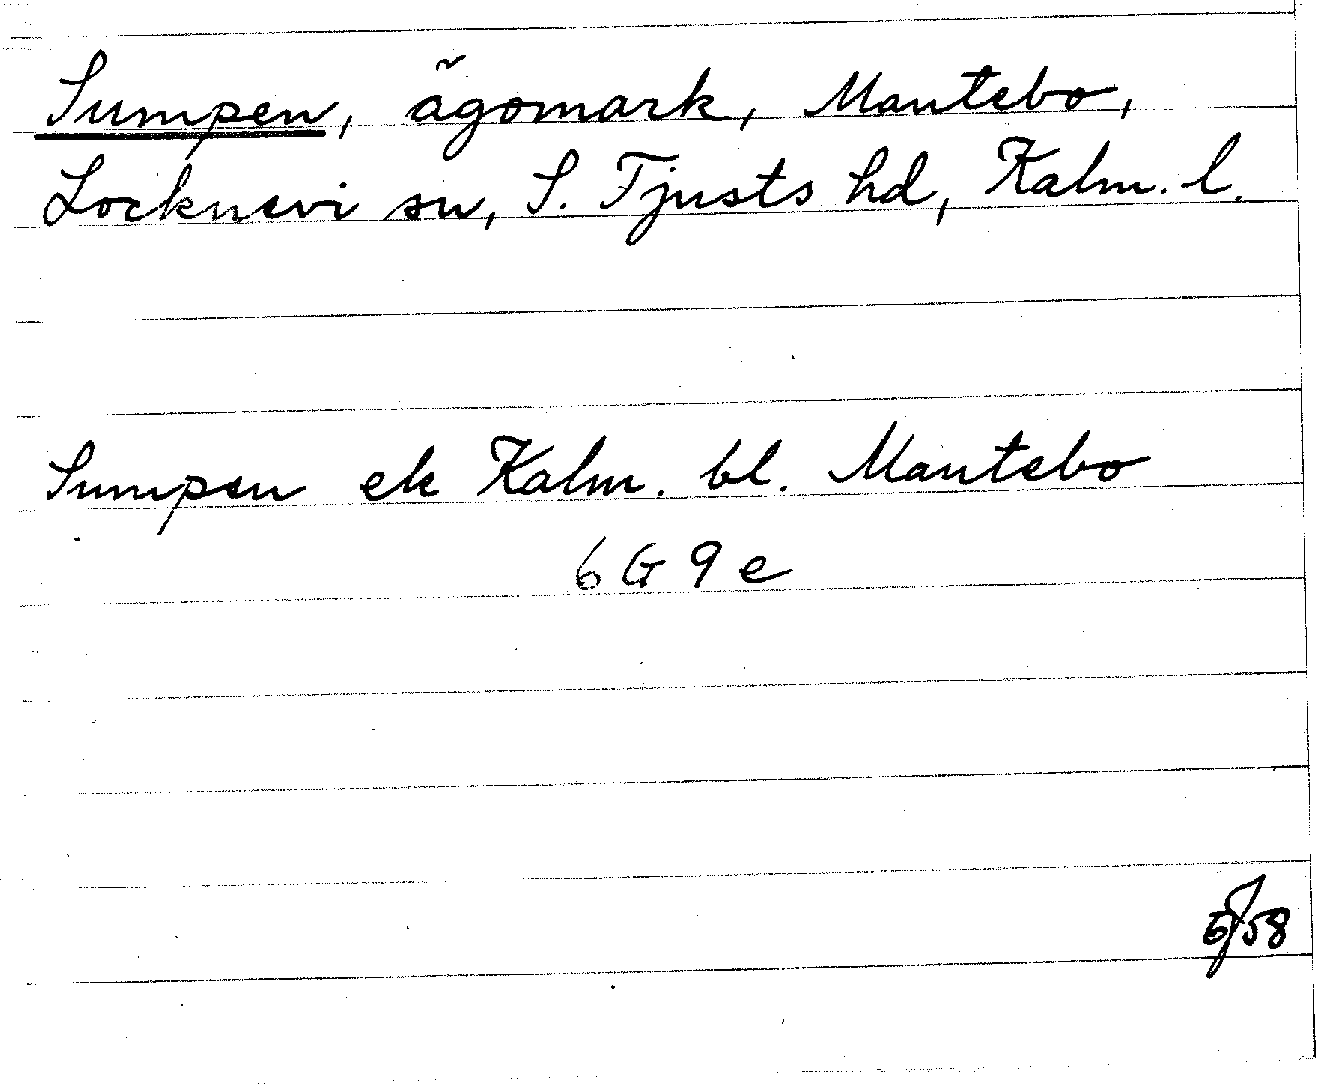 Sumpen, ägomark, Mantebo,
Locknevi sn, S. Tjusts hd, Kalm. l.
Sumpen ek Kalm. bl. Mantebo
6 G 9 e